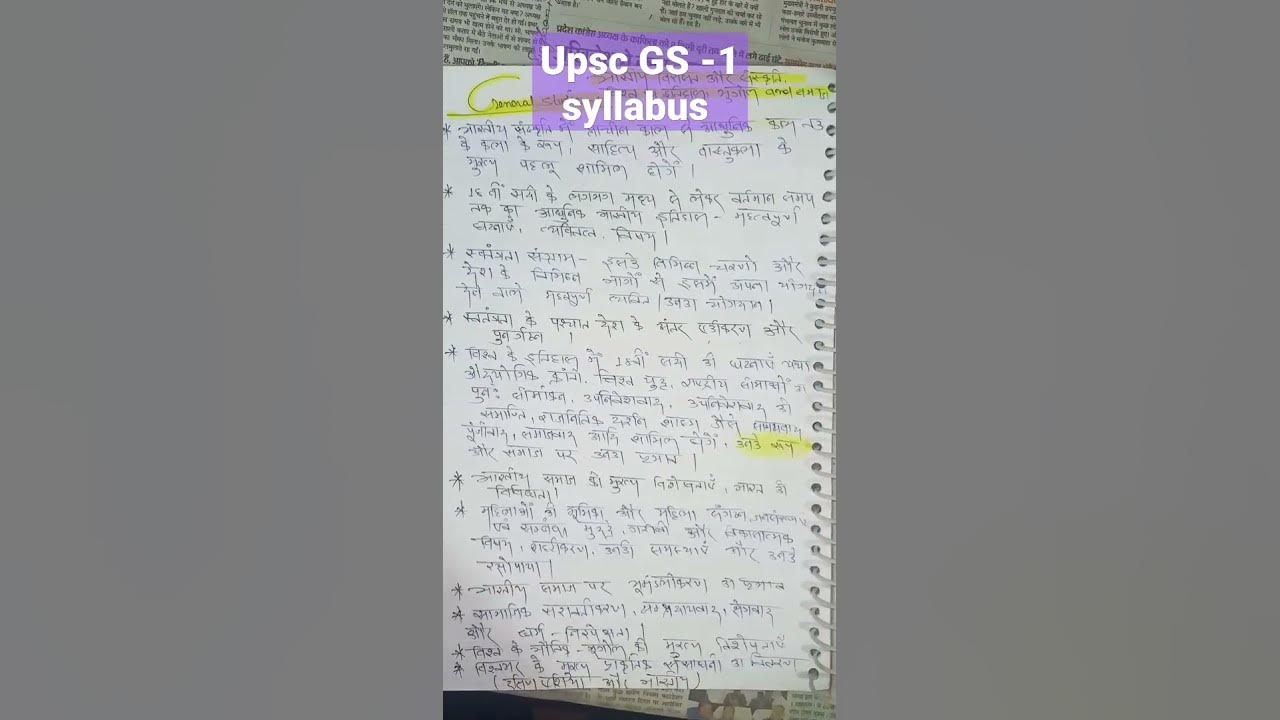 प्रदेश कांग्रेस अध्यक्ष के काफिला को
Upsc GS -1
syllabus
भारतीय विरासत और संस्कृति,
General इतिहास भूगोल and समाज
* भारतीय संस्कृति में प्राचीन काल से आधुनिक काल तक
के कला के रूप, साहित्य और वास्तुकला के
मुख्य पहलू शामिल होगें ।
* 18 वीं सदी के लगभग मध्य से लेकर वर्तमान समय
तक का आधुनिक भारतीय इतिहास - महत्वपूर्ण
घटनाएं, व्यक्तित्व, विषय ।
* स्वतंत्रता संग्राम - इसके विभिन्न चरणों और
देश के विभिन्न भागों से इसमें अपना योगदान
देने वाले महत्वपूर्ण व्यक्ति / उनका योगदान ।
* स्वतंत्रता के पश्चात देश के अंदर एकीकरण और
पुनर्गठन ।
* विश्व के इतिहास में 18वीं सदी की घटनाएं यथा
औद्योगिक क्रांति, विश्व युद्ध, राष्ट्रीय सीमाओं का
पुनः सीमांकन, उपनिवेशवाद, उपनिवेशवाद की
समाप्ति, राजनितिक दर्शन शास्त्र जैसे साम्यवाद
पूंजीवाद, समाजवाद आदि शामिल होगें, उनके रूप
और समाज पर उनका प्रभाव ।
* भारतीय समाज की मुख्य विशेषताएं, भारत की
विविधता ।
* महिलाओं की भूमिका और महिला संगठन, जनसंख्या
एवं सम्बंधित मुद्दे, गरीबी और विकासात्मक
विषय, शहरीकरण, उनकी समस्याएं और उनके
रक्षोपाय ।
* भारतीय समाज पर भूमंडलीकरण का प्रभाव
* सामाजिक सशक्तीकरण, सम्प्रदायवाद, क्षेत्रवाद
और धर्म - निरपेक्षता ।
* विश्व के भौतिक - भूगोल की मुख्य विशेषताएं
* विश्वभर के मुख्य प्राकृतिक संसाधनों का वितरण
(दक्षिण एशिया और